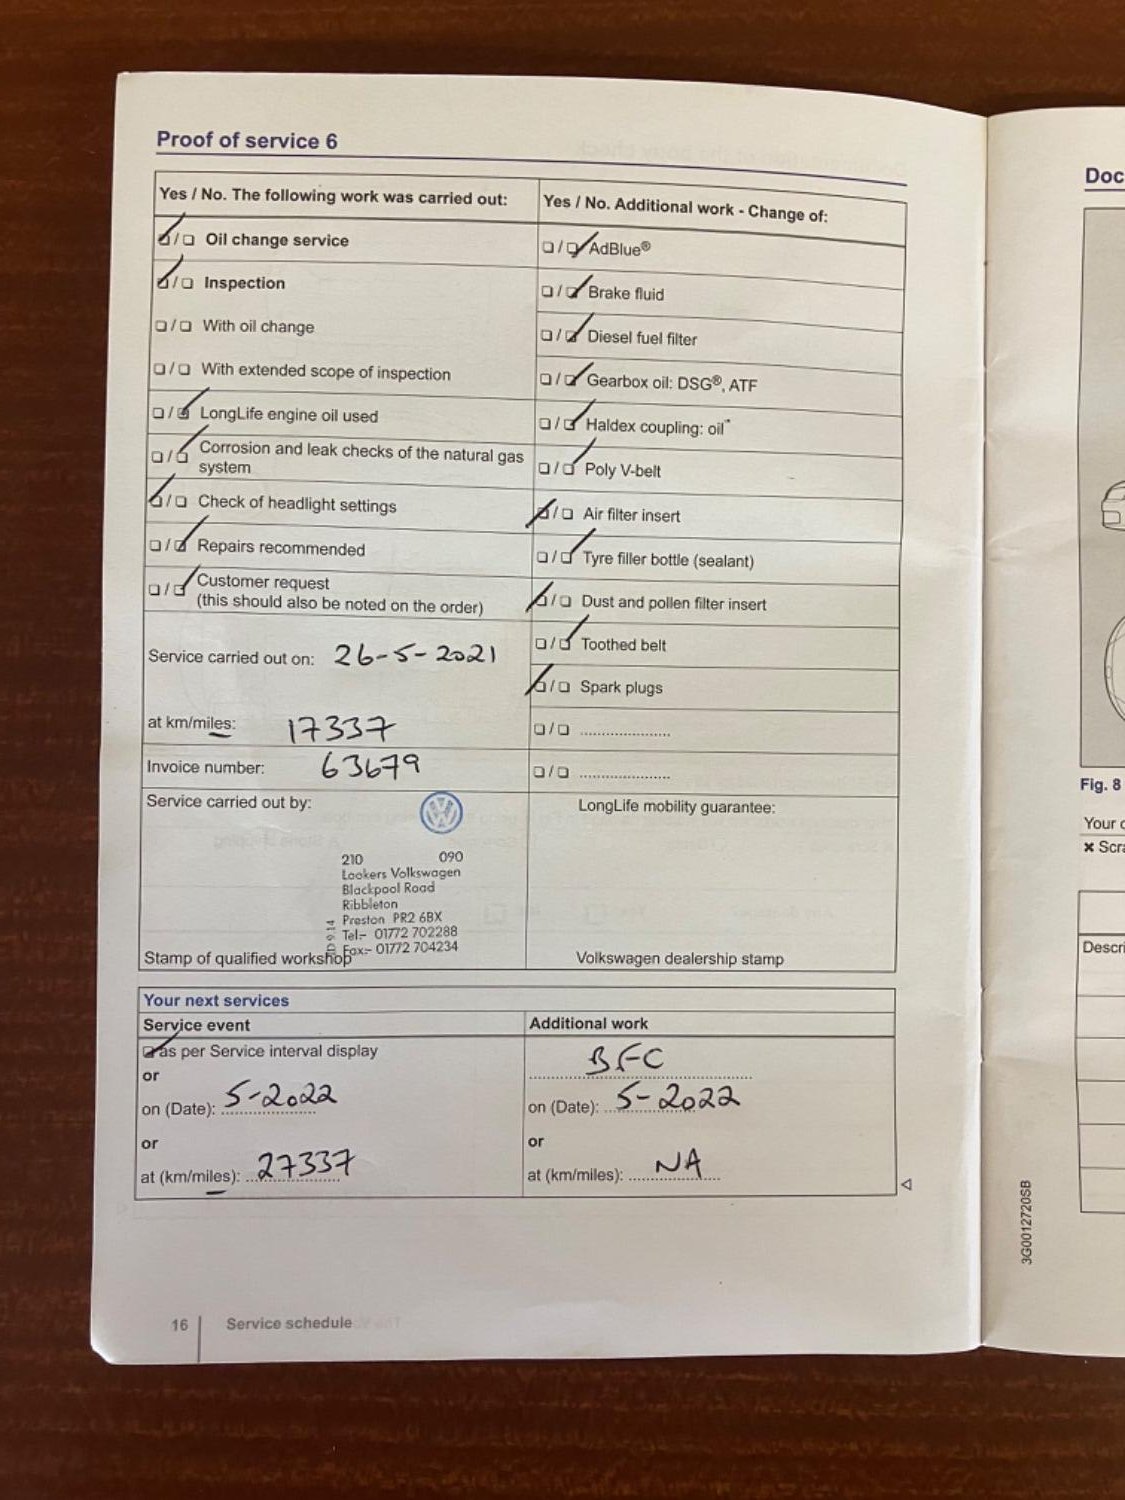 Proof of service 6
Yes / No. The following work was carried out:
❏/❏ Oil change service
❏/❏ Inspection
❏/❏ With oil change
❏/❏ With extended scope of inspection
❏/❏ LongLife engine oil used
❏/❏ Corrosion and leak checks of the natural gas
system
❏/❏ Check of headlight settings
❏/❏ Repairs recommended
❏/❏ Customer request
(this should also be noted on the order)
Service carried out on: 26-5-2021
at km/miles: 17337
Invoice number: 63679
Service carried out by:
210 090
Lookers Volkswagen
Blackpool Road
Ribbleton
Preston PR2 6BX
Tel:- 01772 702288
Fax:- 01772 704234
Stamp of qualified workshop
Yes / No. Additional work - Change of:
❏/❏ AdBlue®
❏/❏ Brake fluid
❏/❏ Diesel fuel filter
❏/❏ Gearbox oil: DSG®, ATF
❏/❏ Haldex coupling: oil*
❏/❏ Poly V-belt
❏/❏ Air filter insert
❏/❏ Tyre filler bottle (sealant)
❏/❏ Dust and pollen filter insert
❏/❏ Toothed belt
❏/❏ Spark plugs
❏/❏ ......................
❏/❏ ......................
LongLife mobility guarantee:
Volkswagen dealership stamp
Your next services
Service event
❏ as per Service interval display
or
on (Date): 5-2022
or
at (km/miles): 27337
Additional work
BFC
on (Date): 5-2022
or
at (km/miles): NA
16 Service schedule
3G0012720SB
Doc
Fig. 8
Your
Scr
Descri